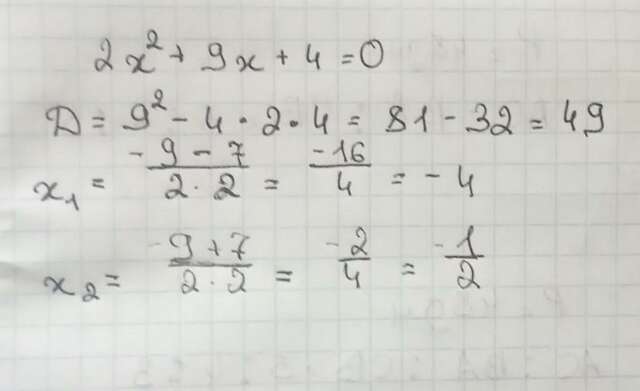 2x² + 9x + 4 = 0
D = 9² - 4 · 2 · 4 = 81 - 32 = 49
x₁ = (-9 - 7)/(2 · 2) = -16/4 = -4
x₂ = (-9 + 7)/(2 · 2) = -2/4 = -1/2